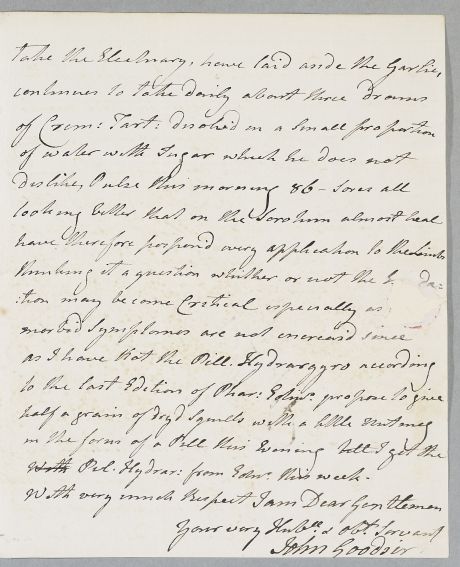 take the Electuary, have laid aside the Garlic,
continues to take daily about three drams
of Crem: Tart: disolved in a small proportion
of water with Sugar which he does not
dislike, Pulse this morning 86 - Sores all
looking better that on the Scrotum almost heal
have therefore postponed every application to the Limbs
thinking it a question whether or not the
:tion may become Critical especially as
morbid Symptomes are not encreased since
as I have not the Pill. Hydrargyro according
to the last Edition of Phar: Edinr. propose to give
half a grain of dryd Squills with a little nutmeg
in the form of a Pill this Evening till I get the
Pil. Hydrar: from Ednr. this week.
With very much Respect I am Dear Gentlemen
Your very Huble. & Obt. Servant
John Goodsir